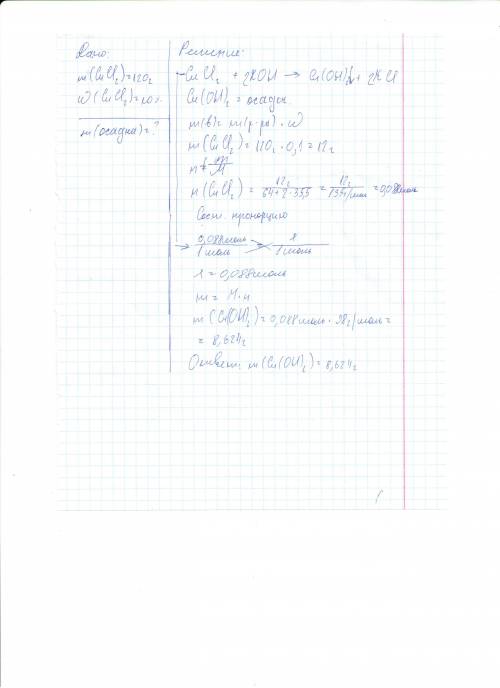 Дано:
m(CuCl₂)=120г
W(CuCl₂)=10%
m(осадка)=?
Решение:
CuCl₂ + 2KOH → Cu(OH)₂↓ + 2KCl
Cu(OH)₂ = осадок.
m(в)= m(р-ра) · w
m(CuCl₂)=120г · 0,1=12г
n(CuCl₂) = 12г / 64+2·35,5 = 12г / 135г/моль = 0,088моль
Сост. пропорцию
0,088моль / 1моль = x / 1моль
x = 0,088моль
m = M·n
m(Cu(OH)₂)=0,088моль · 98г/моль=
= 8,624г
Ответ: m(Cu(OH)₂)=8,624г